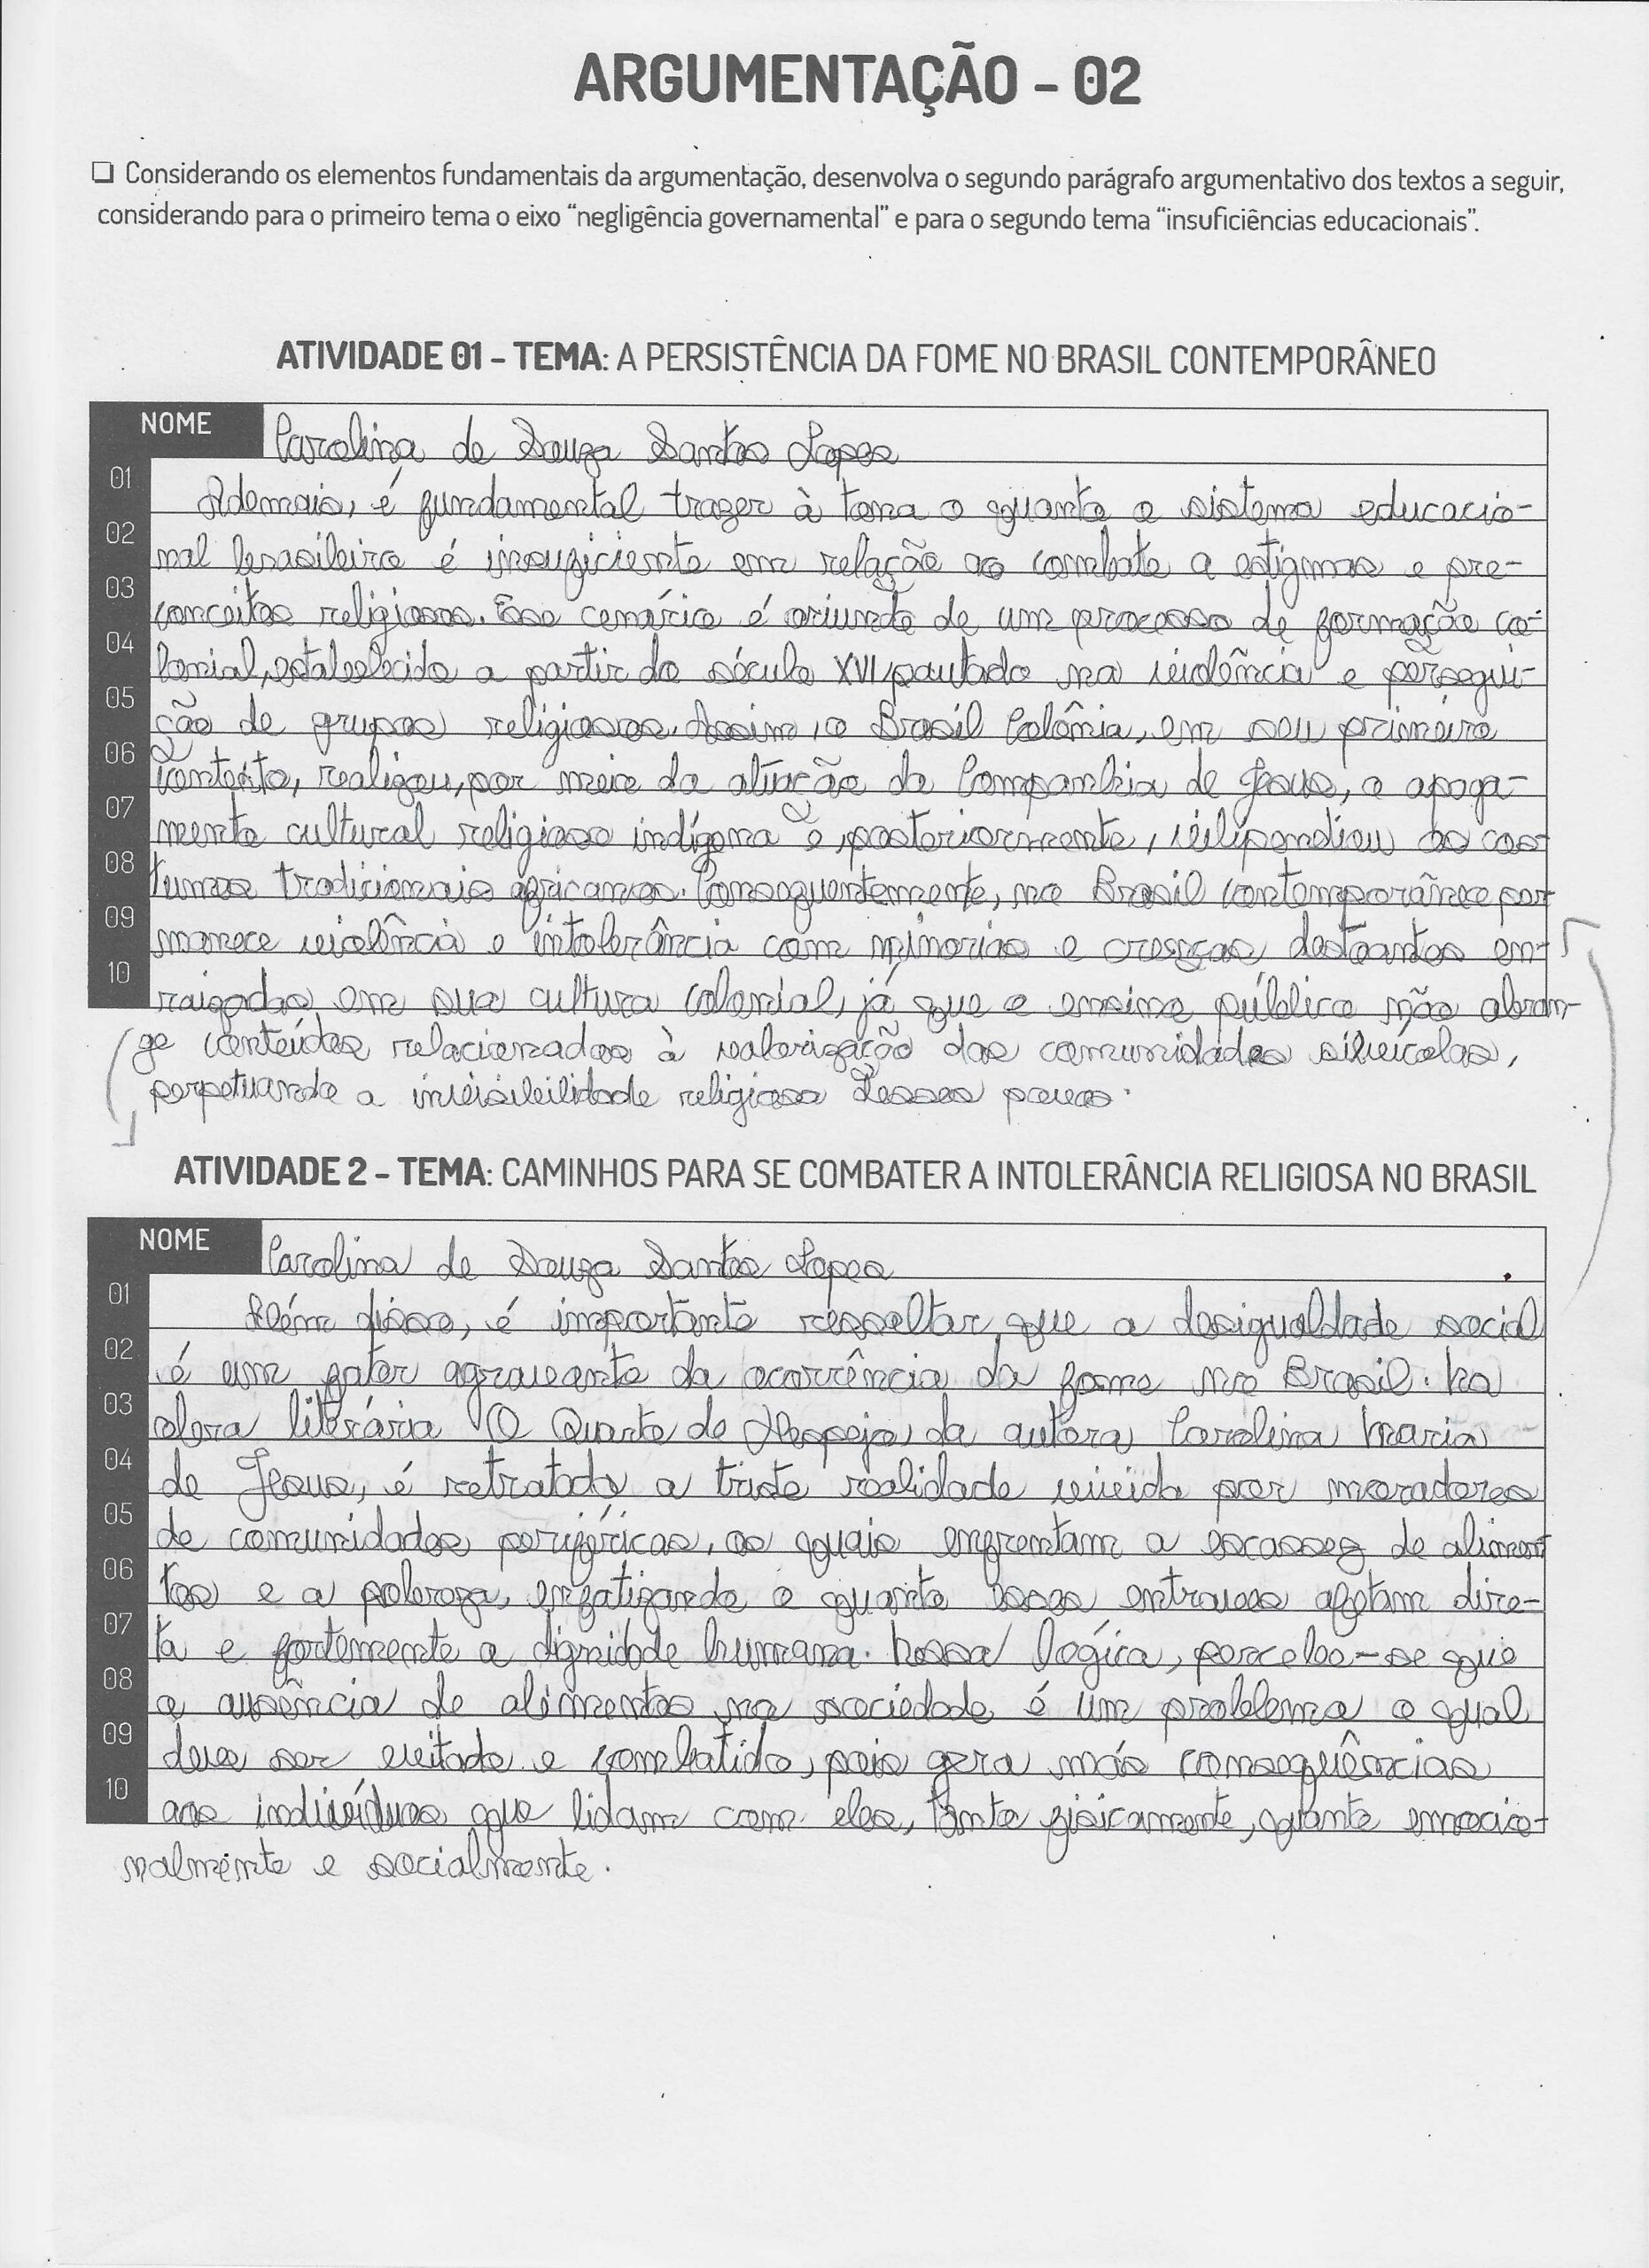 ARGUMENTAÇÃO - 02
❑ Considerando os elementos fundamentais da argumentação, desenvolva o segundo parágrafo argumentativo dos textos a seguir,
considerando para o primeiro tema o eixo “negligência governamental” e para o segundo tema “insuficiências educacionais”.
ATIVIDADE 01 – TEMA: A PERSISTÊNCIA DA FOME NO BRASIL CONTEMPORÂNEO
NOME Carolina de Souza Santos Lopes
01 Ademais, é fundamental trazer à tona o quanto o sistema educacio-
02 nal brasileiro é insuficiente em relação ao combate a estigmas e pre-
03 conceitos religiosos. Esse cenário é oriundo de um processo de formação co-
04 lonial, estabelecido a partir do século XVI, pautado na violência e persegui-
05 ção de grupos religiosos. Assim, o Brasil Colônia, em seu primeiro
06 contexto, realizou, por meio da atuação da Companhia de Jesus, o apaga-
07 mento cultural religioso indígena e, posteriormente, vilipendiou os cos-
08 tumes tradicionais africanos. Consequentemente, no Brasil contemporâneo per-
09 manece violência e intolerância com minorias e crenças destoantes en-
10 raizadas em sua cultura colonial, já que o ensino público não abran-
ge conteúdos relacionados à valorização das comunidades silvícolas,
perpetuando a invisibilidade religiosa desses povos.
ATIVIDADE 2 – TEMA: CAMINHOS PARA SE COMBATER A INTOLERÂNCIA RELIGIOSA NO BRASIL
NOME Carolina de Souza Santos Lopes
01 Além disso, é importante ressaltar que a desigualdade social
02 é um fator agravante da ocorrência da fome no Brasil. Na
03 obra literária O Quarto de Despejo, da autora Carolina Maria
04 de Jesus, é retratada a triste realidade vivida por moradores
05 de comunidades periféricas, os quais enfrentam a escassez de alimen-
06 tos e a pobreza, enfatizando o quanto esses entraves afetam dire-
07 ta e fortemente a dignidade humana. Nessa lógica, percebe-se que
08 a ausência de alimentos na sociedade é um problema o qual
09 deve ser evitado e combatido, pois gera más consequências
10 aos indivíduos que lidam com eles, tanto fisicamente, quanto emocio-
nalmente e socialmente.